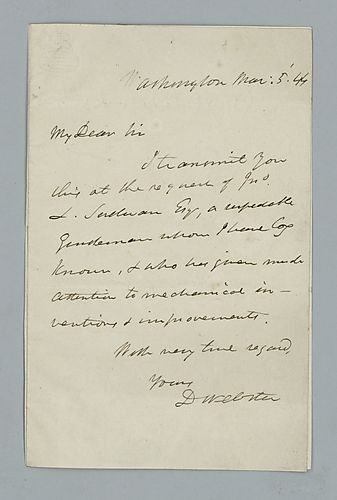 Washington Mar: 5. 44
My Dear Sir
I transmit you
this at the request of Jno.
L. Sullivan Esq, a respectable
Gentleman whom I have long
known, & who has given much
attention to mechanical in-
ventions & improvements.
With very true regard,
Yours
D Webster